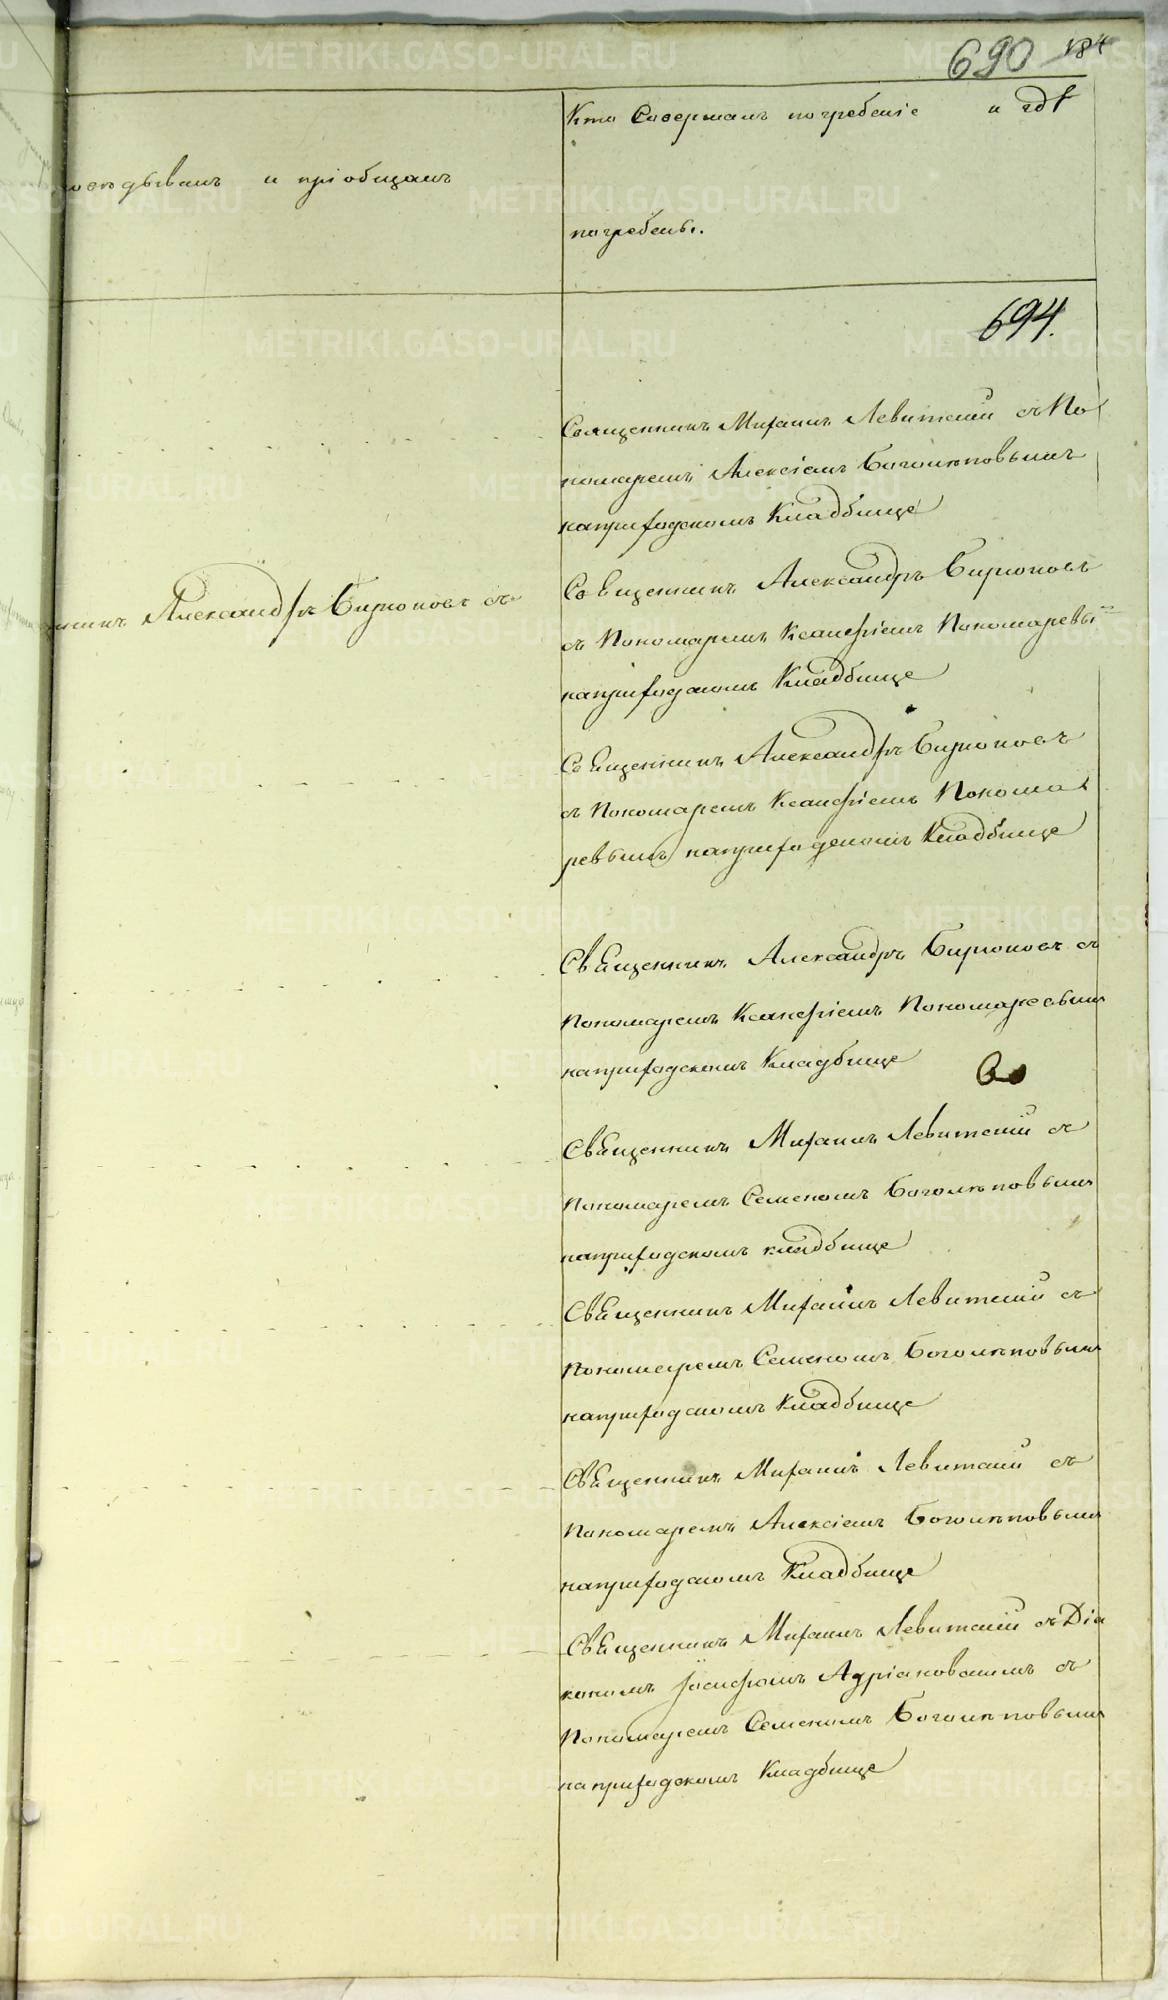 690 184
Кто Совершалъ погребеніе и гдѣ
исповѣдывалъ и пріобщалъ
погребены.
694.
Священникъ Михаилъ Левитскій съ По
номаремъ Алексіемъ Боголѣповымъ
наприходскомъ Кладбище
Священникъ Александръ Бирюковъ
съ Пономаремъ Ксанфіемъ Пономаревы
наприходскомъ Кладбище
Александръ Бирюковъ съ
Священникъ Александръ Бирюковъ
съ Пономаремъ Ксанфіемъ Понома
ревымъ наприходскомъ Кладбище
Священникъ Александръ Бирюковъ съ
Пономаремъ Ксанфіемъ Пономаревымъ
наприходскомъ Кладбище
Священникъ Михаилъ Левитскій съ
Пономаремъ Семеномъ Боголѣповымъ
наприходскомъ кладбище
Священникъ Михаилъ Левитскій съ
Пономаремъ Семеномъ Боголѣповымъ
наприходскомъ Кладбище
Священникъ Михаилъ Левитскій съ
Пономаремъ Алексіемъ Боголѣповымъ
наприходскомъ Кладбище
Священникъ Михаилъ Левитскій съ Діа
кономъ Іосифомъ Адріановскимъ съ
Пономаремъ Семеномъ Боголѣповымъ
на приходскомъ Кладбище
METRIKI.GASO-URAL.RU